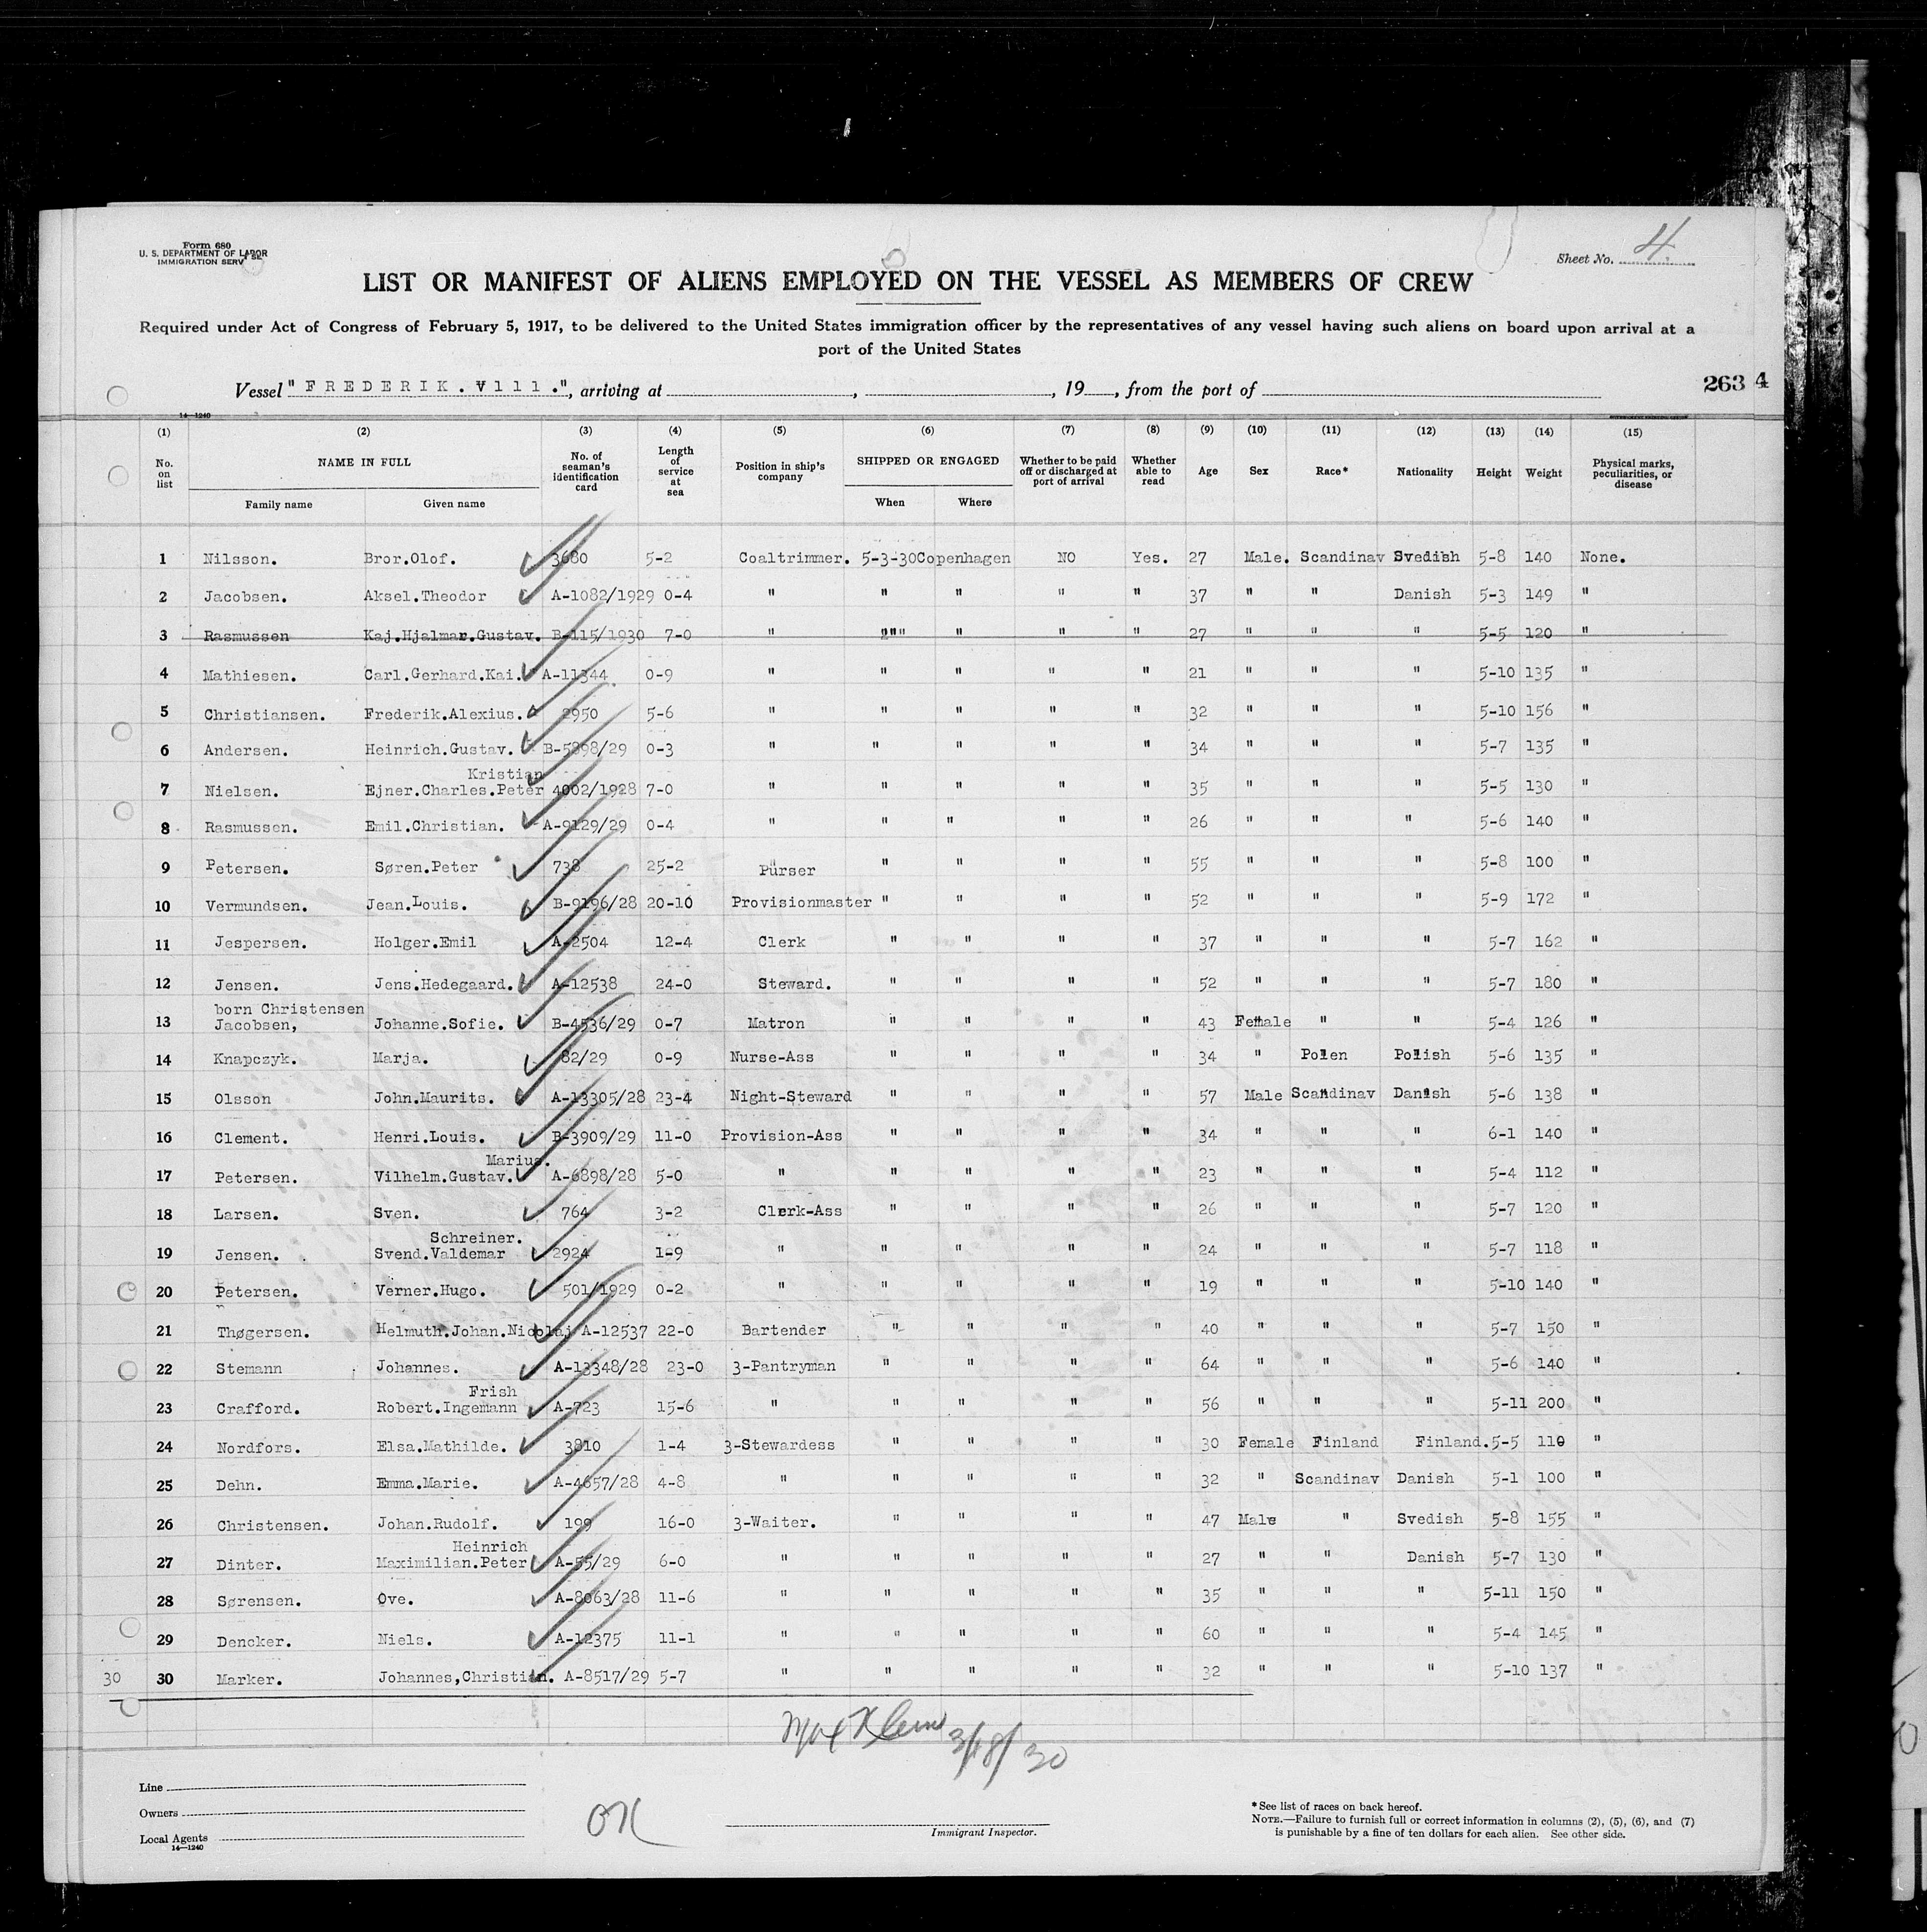 Form 680
U. S. DEPARTMENT OF LABOR
IMMIGRATION SERVICE
Sheet No. 4
LIST OR MANIFEST OF ALIENS EMPLOYED ON THE VESSEL AS MEMBERS OF CREW
Required under Act of Congress of February 5, 1917, to be delivered to the United States immigration officer by the representatives of any vessel having such aliens on board upon arrival at a
port of the United States
Vessel "FREDERIK.V111.", arriving at , , 19 , from the port of
263 4
14—1240
(1) (2) (3) (4) (5) (6) (7) (8) (9) (10) (11) (12) (13) (14) (15)
No. on list NAME IN FULL No. of seaman's identification card Length of service at sea Position in ship's company SHIPPED OR ENGAGED Whether to be paid off or discharged at port of arrival Whether able to read Age Sex Race* Nationality Height Weight Physical marks, peculiarities, or disease
Family name Given name When Where
1 Nilsson. Bror.Olof. 3680 5-2 Coaltrimmer. 5-3-30 Copenhagen NO Yes. 27 Male. Scandinav Svedish 5-8 140 None.
2 Jacobsen. Aksel.Theodor A-1082/1929 0-4 " " " " " 37 " " Danish 5-3 149 "
3 Rasmussen Kaj.Hjalmar.Gustav. B-115/1930 7-0 " """ " " " 27 " " " 5-5 120 "
4 Mathiesen. Carl.Gerhard.Kai. A-11344 0-9 " " " " " 21 " " " 5-10 135 "
5 Christiansen. Frederik.Alexius. 2950 5-6 " " " " " 32 " " " 5-10 156 "
6 Andersen. Heinrich.Gustav. B-5898/29 0-3 " " " " " 34 " " " 5-7 135 "
Kristian
7 Nielsen. Ejner.Charles.Peter 4002/1928 7-0 " " " " " 35 " " " 5-5 130 "
8 Rasmussen. Emil.Christian. A-9129/29 0-4 " " " " " 26 " " " 5-6 140 "
9 Petersen. Søren.Peter 738 25-2 Purser " " " " 55 " " " 5-8 100 "
10 Vermundsen. Jean.Louis. B-9196/28 20-10 Provisionmaster " " " " 52 " " " 5-9 172 "
11 Jespersen. Holger.Emil A-2504 12-4 Clerk " " " " 37 " " " 5-7 162 "
12 Jensen. Jens.Hedegaard. A-12538 24-0 Steward. " " " " 52 " " " 5-7 180 "
born Christensen
13 Jacobsen, Johanne.Sofie. B-4536/29 0-7 Matron " " " " 43 Female " " 5-4 126 "
14 Knapczyk. Marja. 82/29 0-9 Nurse-Ass " " " " 34 " Polen Polish 5-6 135 "
15 Olsson John.Maurits. A-13305/28 23-4 Night-Steward " " " " 57 Male Scandinav Danish 5-6 138 "
16 Clement. Henri.Louis. B-3909/29 11-0 Provision-Ass " " " " 34 " " " 6-1 140 "
Marius.
17 Petersen. Vilhelm.Gustav. A-6898/28 5-0 " " " " " 23 " " " 5-4 112 "
18 Larsen. Sven. 764 3-2 Clerk-Ass " " " " 26 " " " 5-7 120 "
Schreiner.
19 Jensen. Svend.Valdemar 2924 1-9 " " " " " 24 " " " 5-7 118 "
20 Petersen. Verner.Hugo. 501/1929 0-2 " " " " " 19 " " " 5-10 140 "
21 Thøgersen. Helmuth.Johan.Nicolaj A-12537 22-0 Bartender " " " " 40 " " " 5-7 150 "
22 Stemann Johannes. A-13348/28 23-0 3-Pantryman " " " " 64 " " " 5-6 140 "
Frish
23 Crafford. Robert.Ingemann A-723 15-6 " " " " " 56 " " " 5-11 200 "
24 Nordfors. Elsa.Mathilde. 3810 1-4 3-Stewardess " " " " 30 Female Finland Finland. 5-5 110 "
25 Dehn. Emma.Marie. A-4657/28 4-8 " " " " " 32 " Scandinav Danish 5-1 100 "
26 Christensen. Johan.Rudolf. 199 16-0 3-Waiter. " " " " 47 Male " Svedish 5-8 155 "
Heinrich
27 Dinter. Maximilian.Peter A-55/29 6-0 " " " " " 27 " " Danish 5-7 130 "
28 Sørensen. Ove. A-8063/28 11-6 " " " " " 35 " " " 5-11 150 "
29 Dencker. Niels. A-12375 11-1 " " " " " 60 " " " 5-4 145 "
30 30 Marker. Johannes,Christian. A-8517/29 5-7 " " " " " 32 " " " 5-10 137 "
Max Klein 3/18/30
Line
Owners
Local Agents
14—1240
OK
Immigrant Inspector.
*See list of races on back hereof.
NOTE.—Failure to furnish full or correct information in columns (2), (5), (6), and (7)
is punishable by a fine of ten dollars for each alien. See other side.